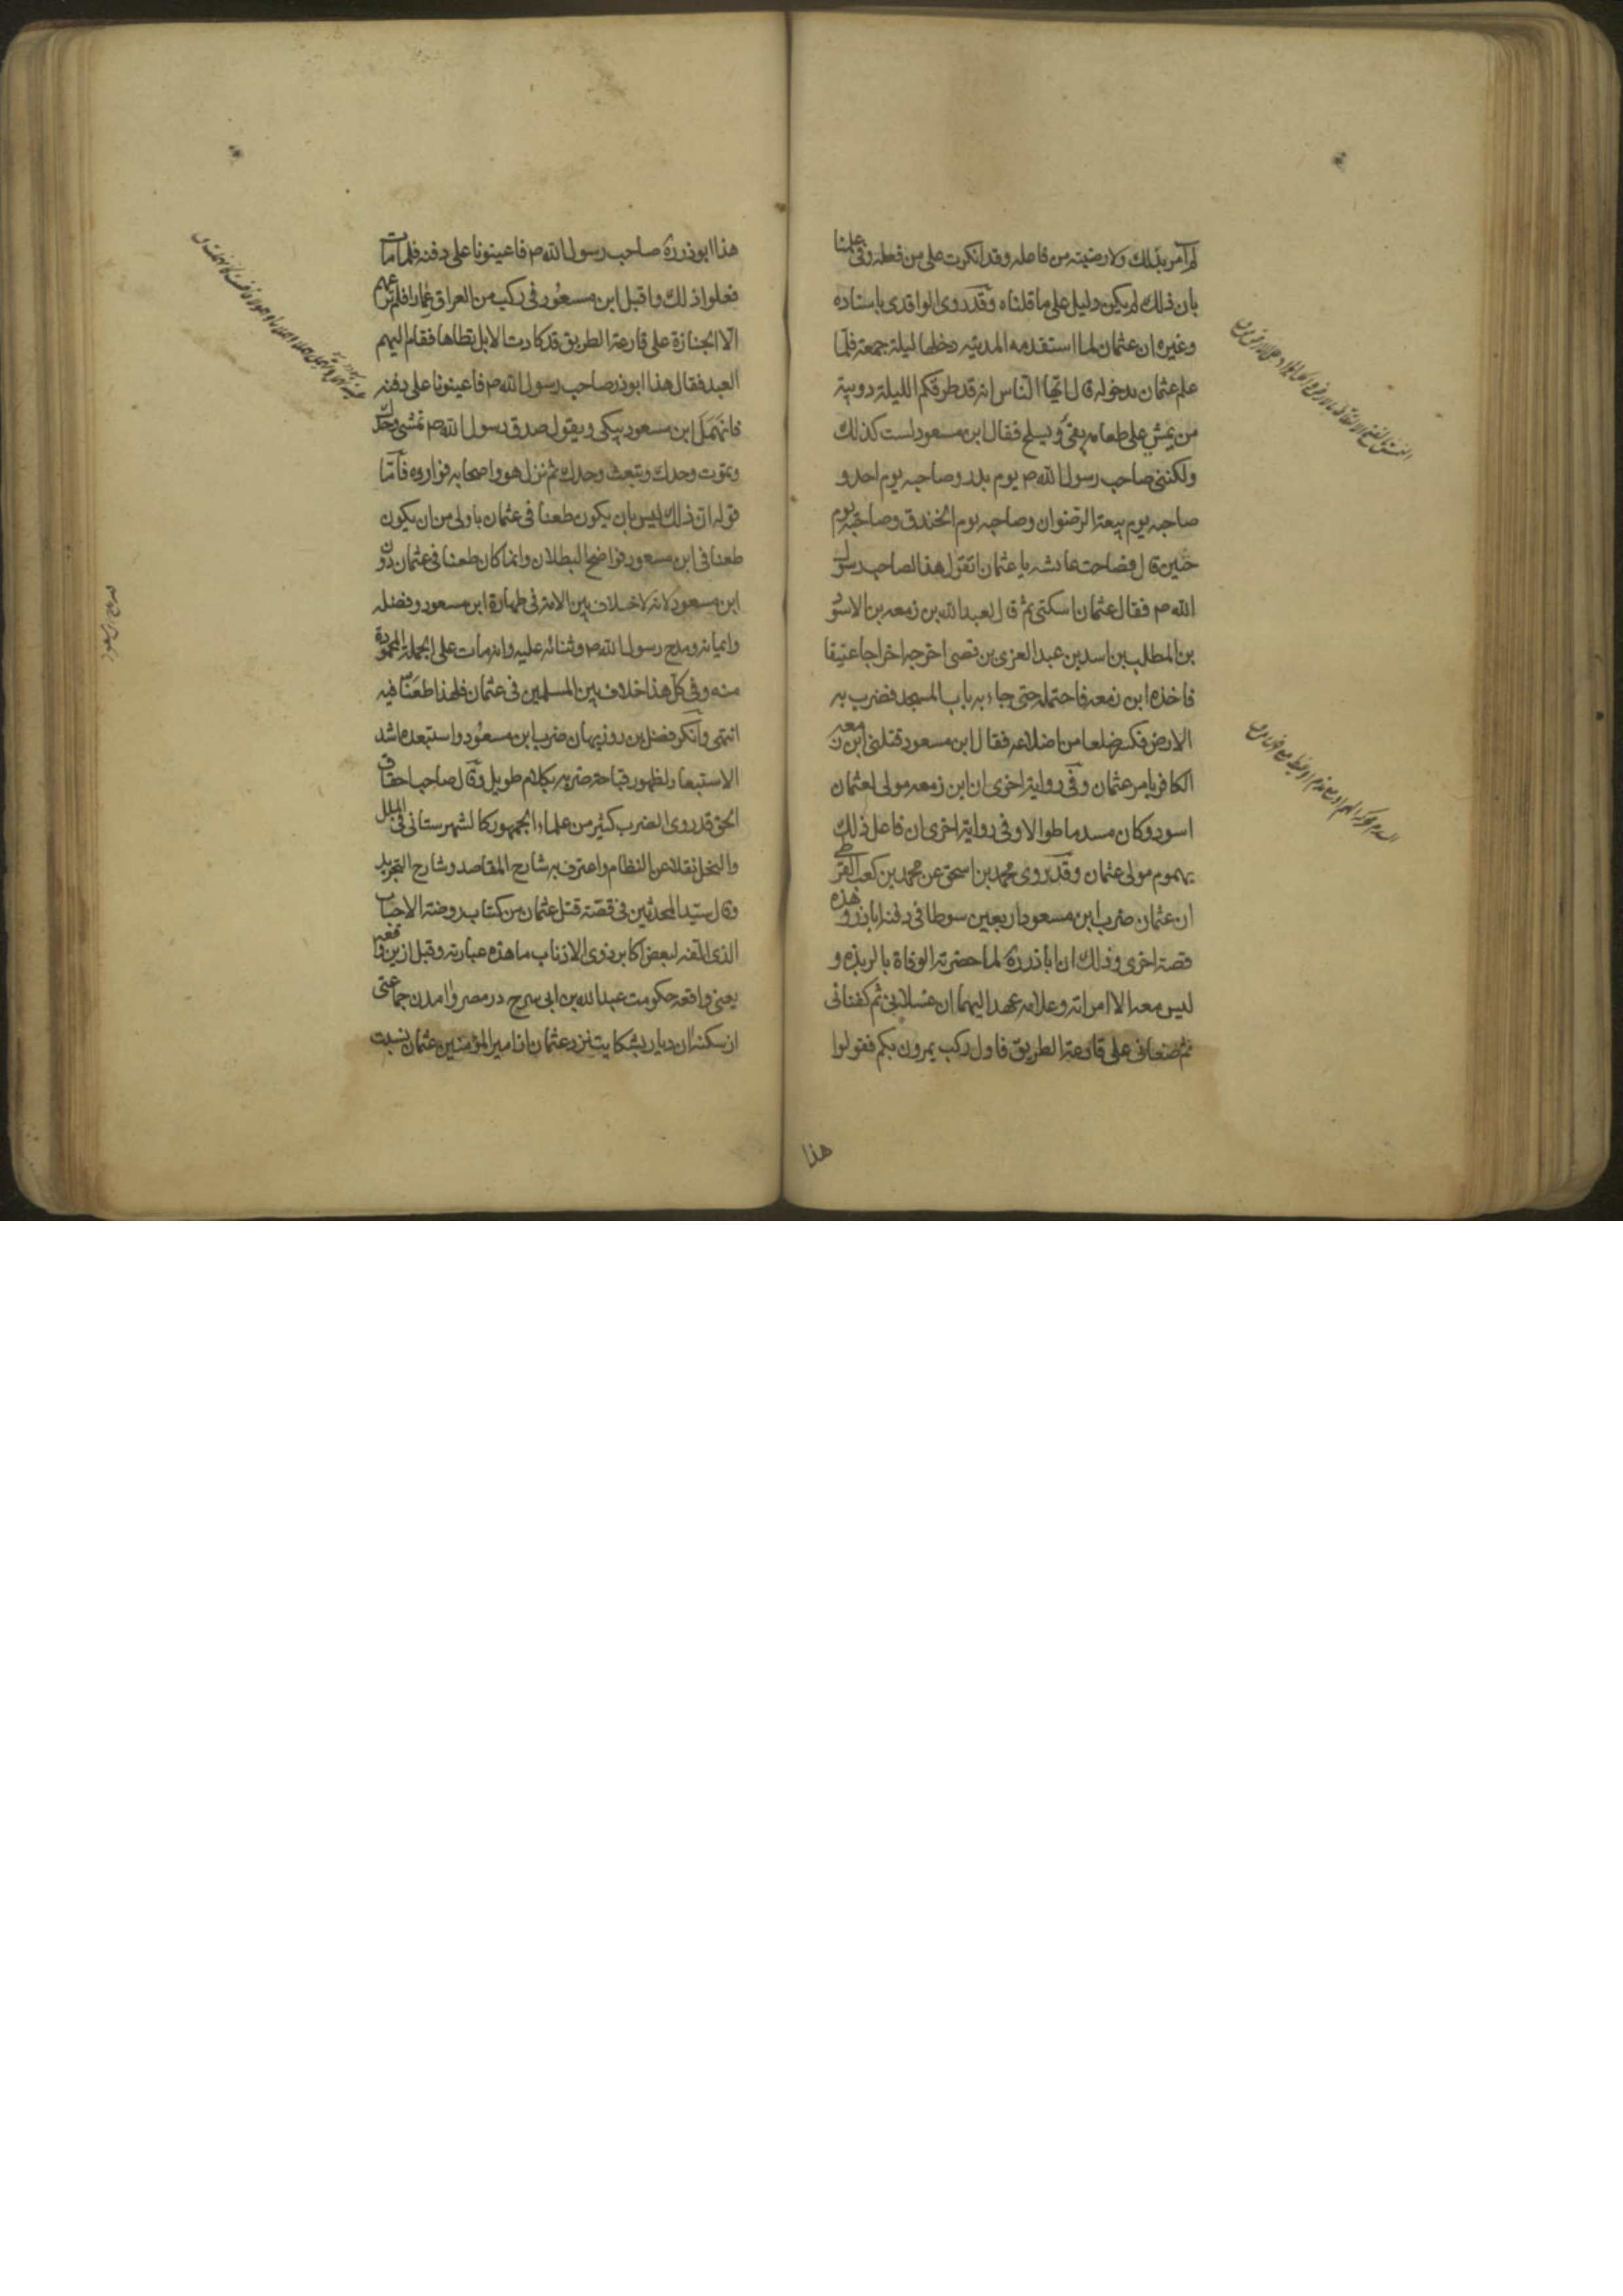 لم آمر بذلك ولا رضيته من فاعله وقد انكرت على من فعله وفى علمنا
بان ذلك لم يكن دليل على ما قلناه وقد روى الواقدى باسناده
وغيره ان عثمان لما استقدمه المدينه دخلها ليلة جمعة فلما
علم عثمان بدخوله قال ايها الناس انه قد طرقكم الليلة دويبة
من يمش على طعامه يقئ ويسلح فقال ابن مسعود لست كذلك
ولكننى صاحب رسول الله ص يوم بدر وصاحبه يوم احد و
صاحبه يوم بيعة الرضوان وصاحبه يوم الخندق وصاحبه يوم
حنين قال فصاحت عائشه يا عثمان اتقول هذا لصاحب رسول
الله ص فقال عثمان اسكتى ثم قال لعبد الله بن زمعه بن الاسود
بن المطلب بن اسد بن عبد العزى بن قصى اخرجه اخراجا عنيفا
فاخذه ابن زمعه فاحتمله حتى جاء به باب المسجد فضرب به
الارض فكسر ضلعا من اضلاعه فقال ابن مسعود قتلنى ابن زمعه
الكافر بامر عثمان وفى رواية اخرى ان ابن زمعه مولى لعثمان
اسود وكان مسدما طوالا وفى رواية اخرى ان فاعل ذلك
يهموم مولى عثمان وقد روى محمد بن اسحق عن محمد بن كعب القرظى
ان عثمان ضرب ابن مسعود اربعين سوطا فى دفنه اباذر وهذه
قصة اخرى وذلك ان اباذر ره لما حضرته الوفاة بالربذه و
ليس معه الا امراته وغلامه عهد اليهما ان غسلانى ثم كفنانى
ثم ضعانى على قارعة الطريق فاول ركب يمرون بكم فقولوا
هذا
هذا ابوذر ره صاحب رسول الله ص فاعينونا على دفنه فلما مات
فعلوا ذلك واقبل ابن مسعود فى ركب من العراق عمارا فلم ترعهم
الا الجنازة على قارعة الطريق قد كادت الابل تطاها فقام اليهم
العبد فقال هذا ابوذر صاحب رسول الله ص فاعينونا على دفنه
فانهمل ابن مسعود يبكى ويقول صدق رسول الله ص تمشى وحدك
وتموت وحدك وتبعث وحدك ثم نزل هو واصحابه فواروه فاما
قوله ان ذلك ليس بان يكون طعنا فى عثمان باولى من ان يكون
طعنا فى ابن مسعود فواضح البطلان وانما كان طعنا فى عثمان دون
ابن مسعود لانه لا خلاف بين الامة فى طهارة ابن مسعود وفضله
وايمانه ومدح رسول الله ص وثنائه عليه وانه مات على الجملة المحمودة
منه وفى كل هذا خلاف بين المسلمين فى عثمان فلهذا طعنا فيه
انتهى وانكر فضل بن روزبهان ضرب ابن مسعود واستبعده اشد
الاستبعاد لظهور قباحة ضربه بكلام طويل وقال صاحب احقاق
الحق قد روى الضرب كثير من علماء الجمهور كالشهرستانى فى الملل
والنحل نقلا عن النظام واعترف به شارح المقاصد وشارح التجريد
وقال سيد المحدثين فى قصة قتل عثمان من كتاب روضة الاحباب
الذى الفه لبعض اكابر ذوى الاذناب ما هذه عبارته وقبل ازين واقعه
يعنى واقعه حكومت عبد الله بن ابى سرح در مصر وامدن جماعتى
از سكنه ان ديار بشكايت نزد عثمان از امير المؤمنين عثمان نسبت